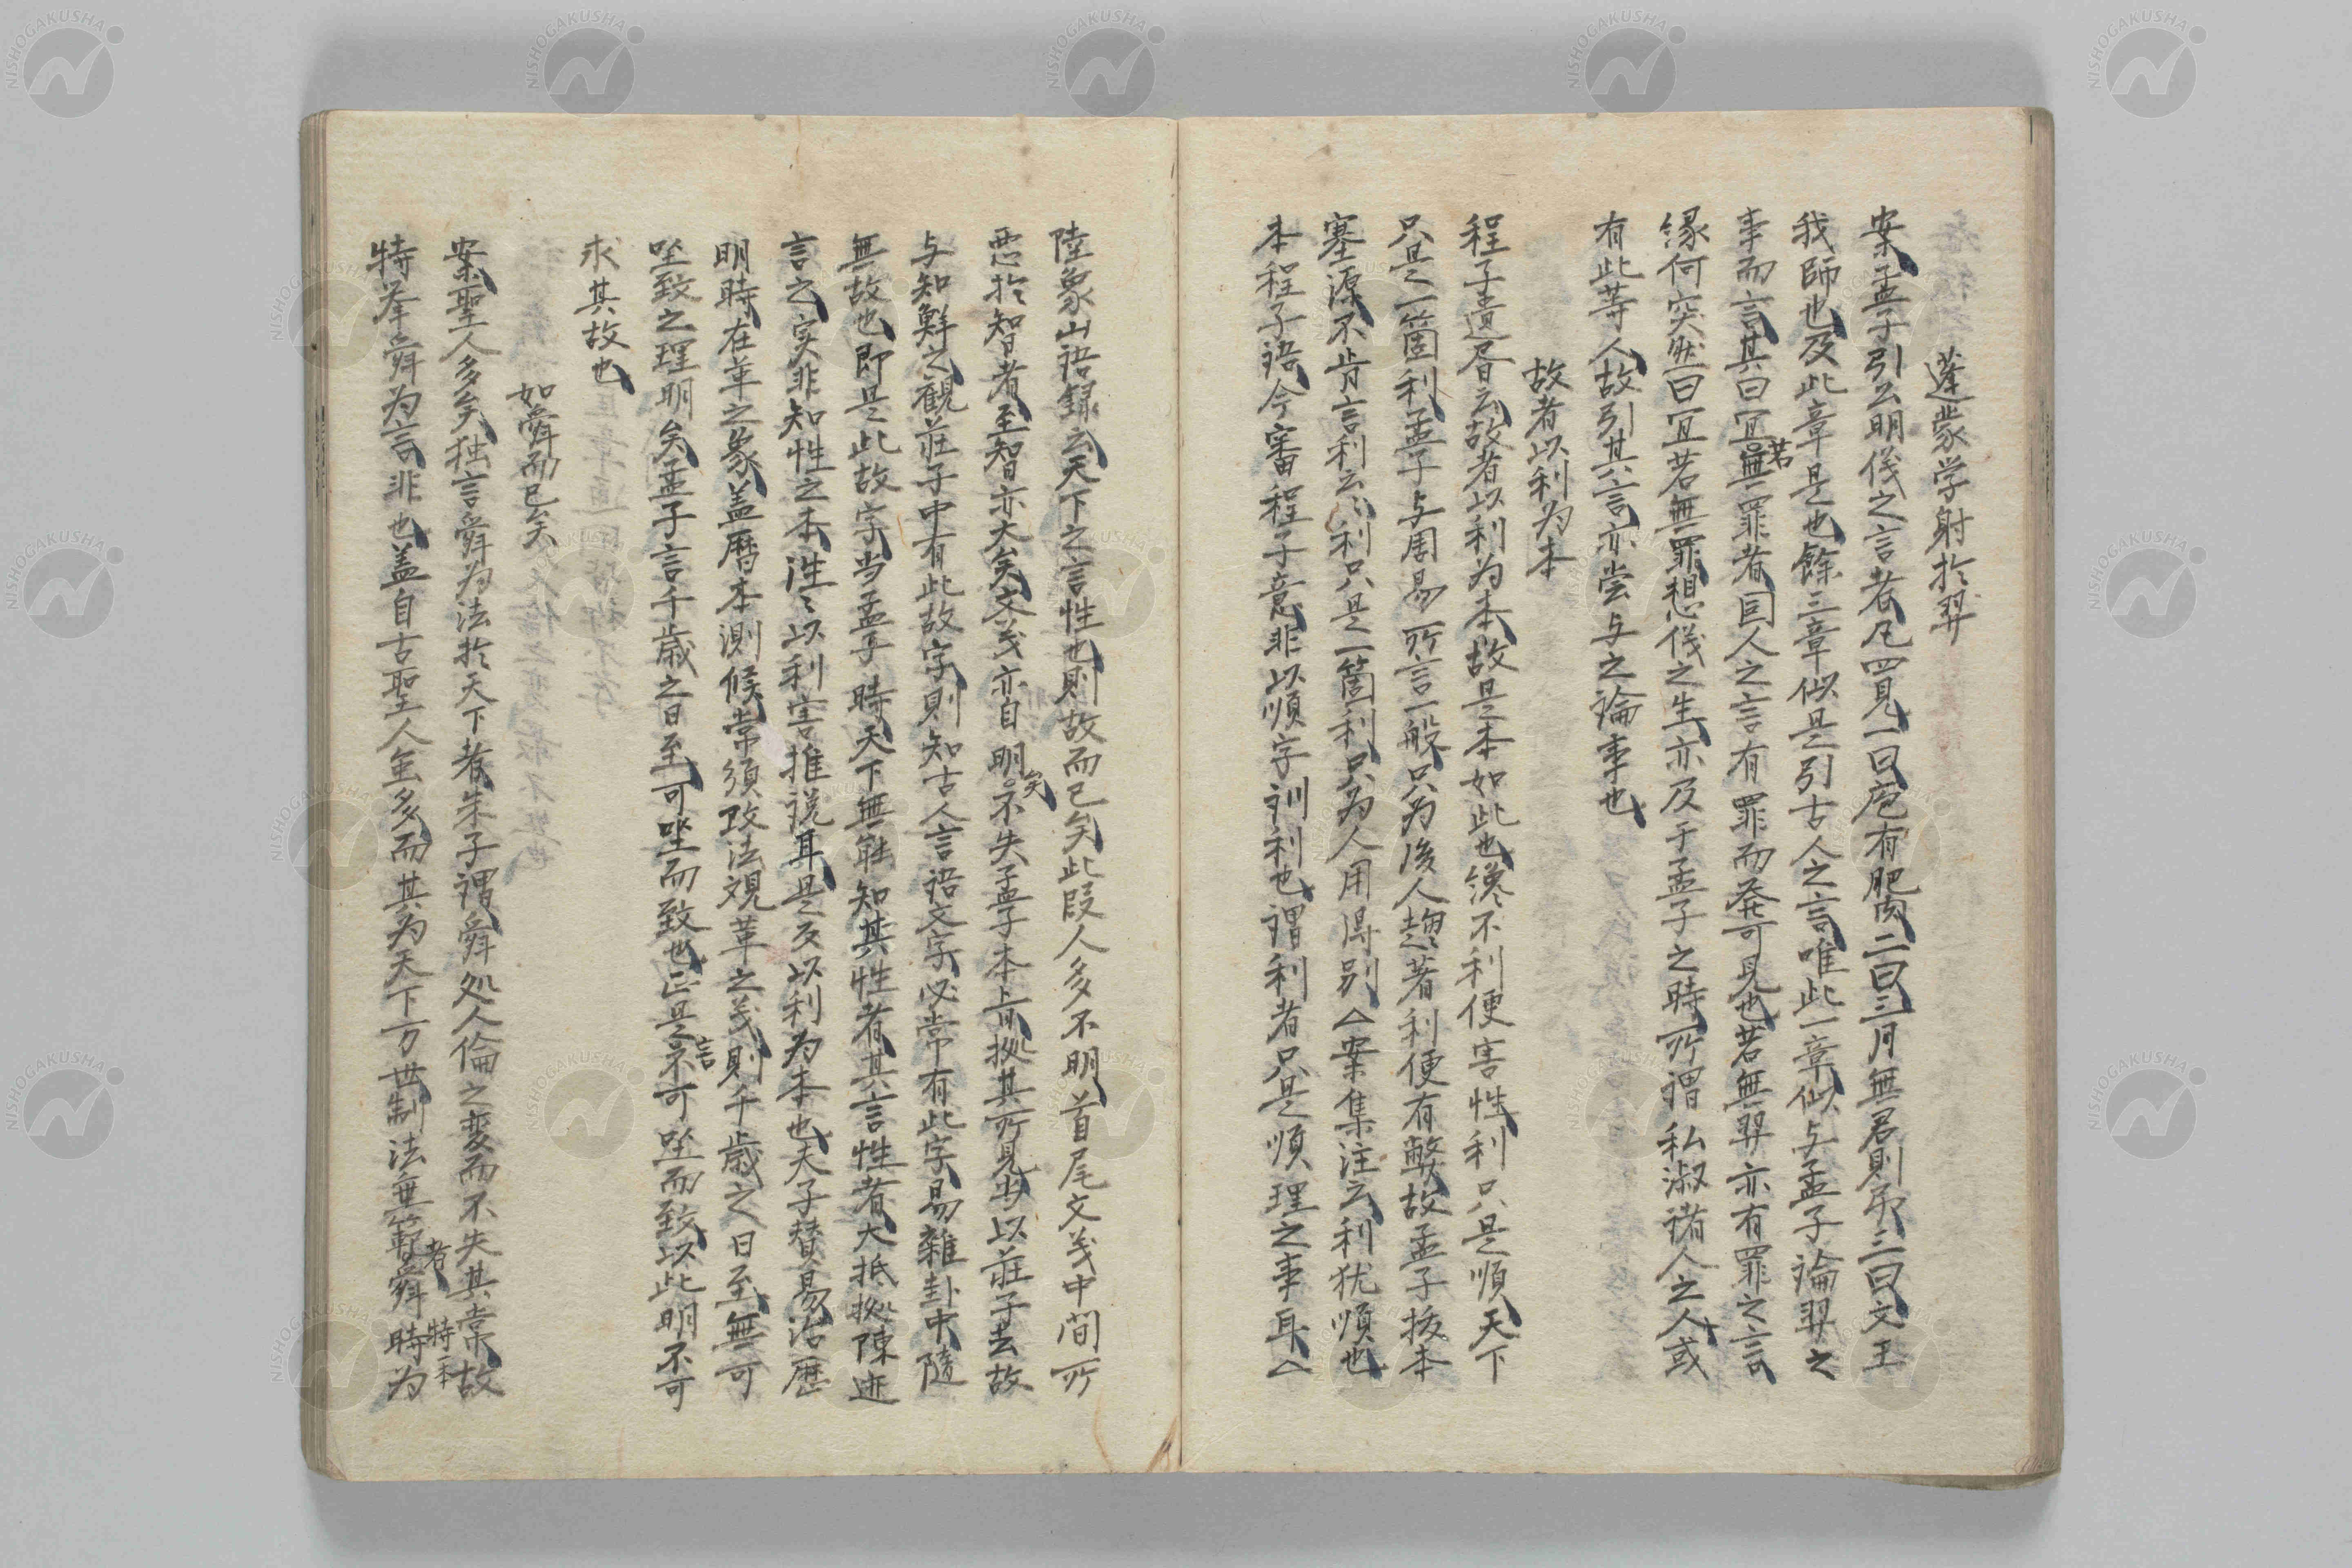 逢蒙学射於羿
案孟子引公明儀之言者凡四見一曰庖有肥肉二曰三月無君則弔三曰文王
我師也及此章是也餘三章似是引古人之言唯此一章似与孟子論羿之
事而言其曰宜若無罪者因人之言有罪而発可見也若無羿亦有罪之言
縁何突然曰宜若無罪想儀之生亦及于孟子之時所謂私淑諸人之人或
有此等人故引其言亦嘗与之論事也
故者以利為本
程子遺書云故者以利為本故是本如此也纔不利便害性利只是順天下
只是一箇利孟子与周易所言一般只為後人趨著利便有弊故孟子抜本
塞源不肯言利云〻利只是一箇利只為人用得別△案集注云利犹順也
本程子語今審程子意非以順字訓利也謂利者只是順理之事耳△
陸象山語録云天下之言性也則故而已矣此段人多不明首尾文義中間所
悪於智者至智亦大矣文義亦自明矣不失孟子本旨拠其所見当以荘子去故
与知觧之観荘子中有此故字則知古人言語文字必常有此字易雜卦中隨
無故也即是此故字当孟子時天下無能知其性者其言性者大抵拠陳迹
言之実非知性之本性〻以利害推説耳是反以利為本也夫子賛易治歴
明時在革之象盖暦本測候常須改法観革之義則千歳之日至無可
坐致之理明矣孟子言千歳之日至可坐而致也正是言不可坐而致以此明不可
求其故也
如舜而已矣
案聖人多矣独言舜為法於天下者朱子謂舜処人倫之変而不失其常故
特挙舜為言非也盖自古聖人虽多而其為天下万世制法無踰舜者時為
特一本
NISHOGAKUSHA